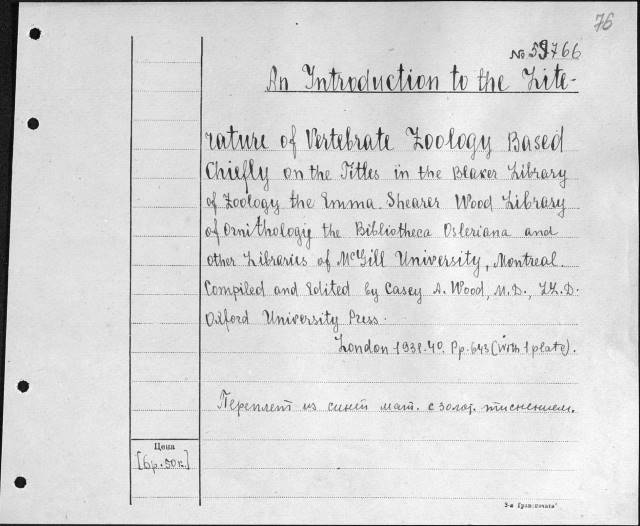 76
№ 59766
An Introduction to the Lite-
rature of Vertebrate Zoology Based
Chiefly on the Titles in the Blaker Library
of Zoology the Emma Shearer Wood Library
of Ornithology the Bibliotheca Osleriana and
other Libraries of McGill University, Montreal.
Compiled and Edited by Casey A. Wood, M.D., LL.D.
Oxford University Press.
London 1931. 4o. Pp. 643 (with 1 plate).
Переплет из синей мат. с золот. тиснением.
Цена
[6р.-50к.]